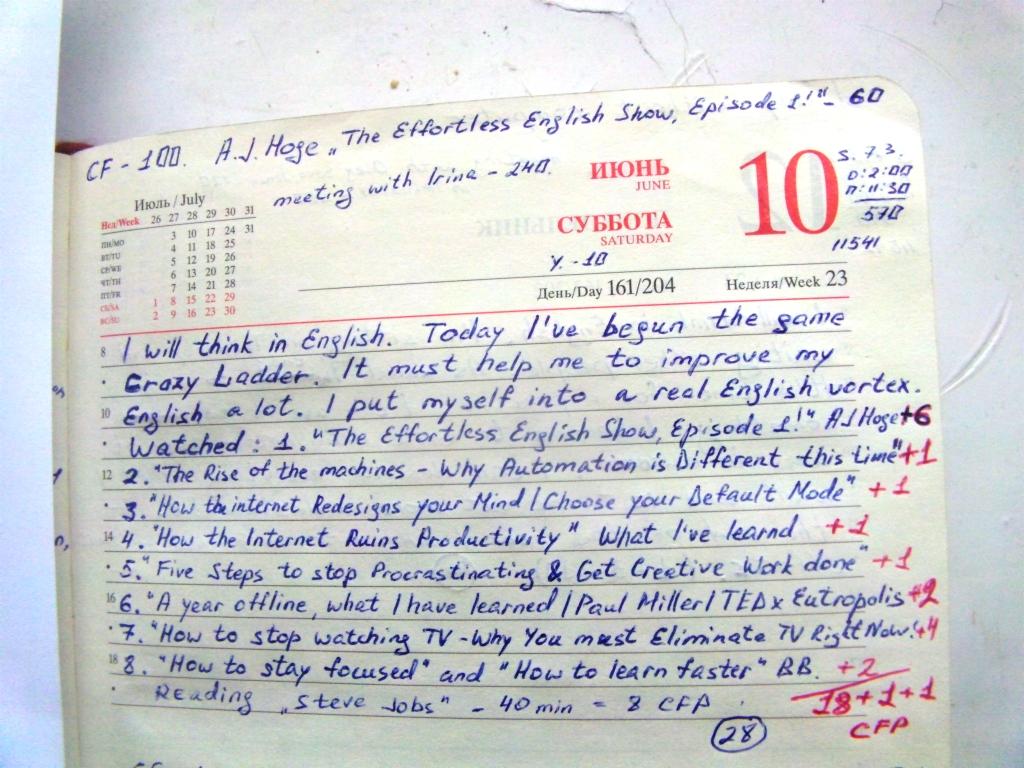 CF - 100. A.J. Hoge „The Effortless English Show, Episode 1!" - 60
meeting with Irina - 240.
Июль / July
Нед/Week 26 27 28 29 30 31
ПН/МО 3 10 17 24 31
ВТ/TU 4 11 18 25
СР/WE 5 12 19 26
ЧТ/TH 6 13 20 27
ПТ/FR 7 14 21 28
СБ/SA 1 8 15 22 29
ВС/SU 2 9 16 23 30
ИЮНЬ
JUNE
СУББОТА
SATURDAY
10
S. 7.3.
0:2:00
П:11:30
570
11541
Y. - 10
День/Day 161/204
Неделя/Week 23
8 I will think in English. Today I've begun the game
Crazy Ladder. It must help me to improve my
10 English a lot. I put myself into a real English vortex.
Watched: 1. "The Effortless English Show, Episode 1!" AJ Hoge +6
12 2. "The Rise of the machines - Why Automation is Different this time" +1
3. "How the internet Redesigns your Mind / Choose your Default Mode" +1
14 4. "How the Internet Ruins Productivity" What I've learnd +1
5. "Five Steps to stop Procrastinating & Get Creative Work done" +1
16 6. "A year offline, what I have learned / Paul Miller / TEDx Eutropolis +2
7. "How to stop watching TV - Why You must Eliminate TV Right Now! +4
18 8. "How to stay focused" and "How to learn faster" BB. +2
Reading „Steve Jobs" - 40 min = 8 CFP
18 + 1 + 1
CFP
28